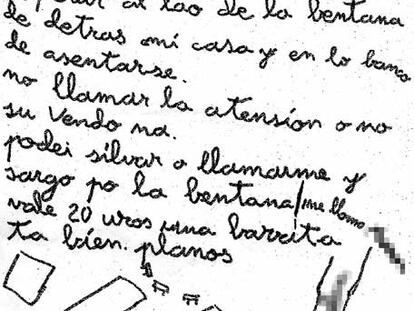 al lao de la bentana
de detras mi casa y en lo banco
de asentarse.
no llamar la atensión o no
su vendo na.
podei silvar o llamarme y
sargo po la bentana/me llamo
vale 20 uros una barrita
ta bien. planos